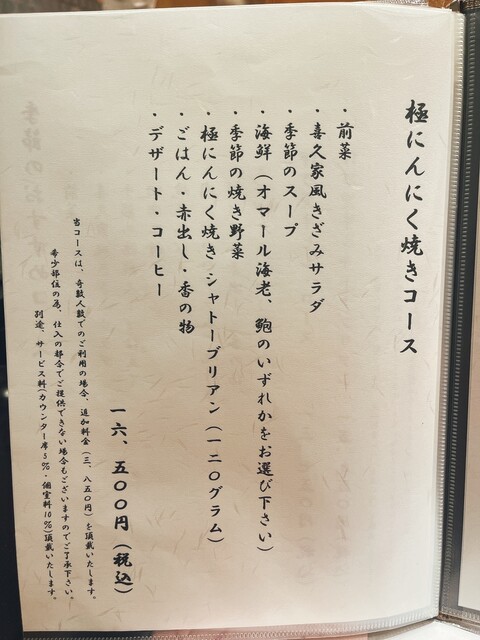 極にんにく焼きコース
・前菜
・喜久家風きざみサラダ
・季節のスープ
・海鮮(オマール海老、鮑のいずれかをお選び下さい)
・季節の焼き野菜
・極にんにく焼き シャトーブリアン(一二〇グラム)
・ごはん・赤出し・香の物
・デザート・コーヒー
一六、五〇〇円(税込)
当コースは、奇数人数でのご利用の場合、追加料金(三、八五〇円)を頂戴いたします。
希少部位の為、仕入の都合でご提供できない場合もございますのでご了承下さい。
別途、サービス料(カウンター席5%・個室料10%)頂戴いたします。